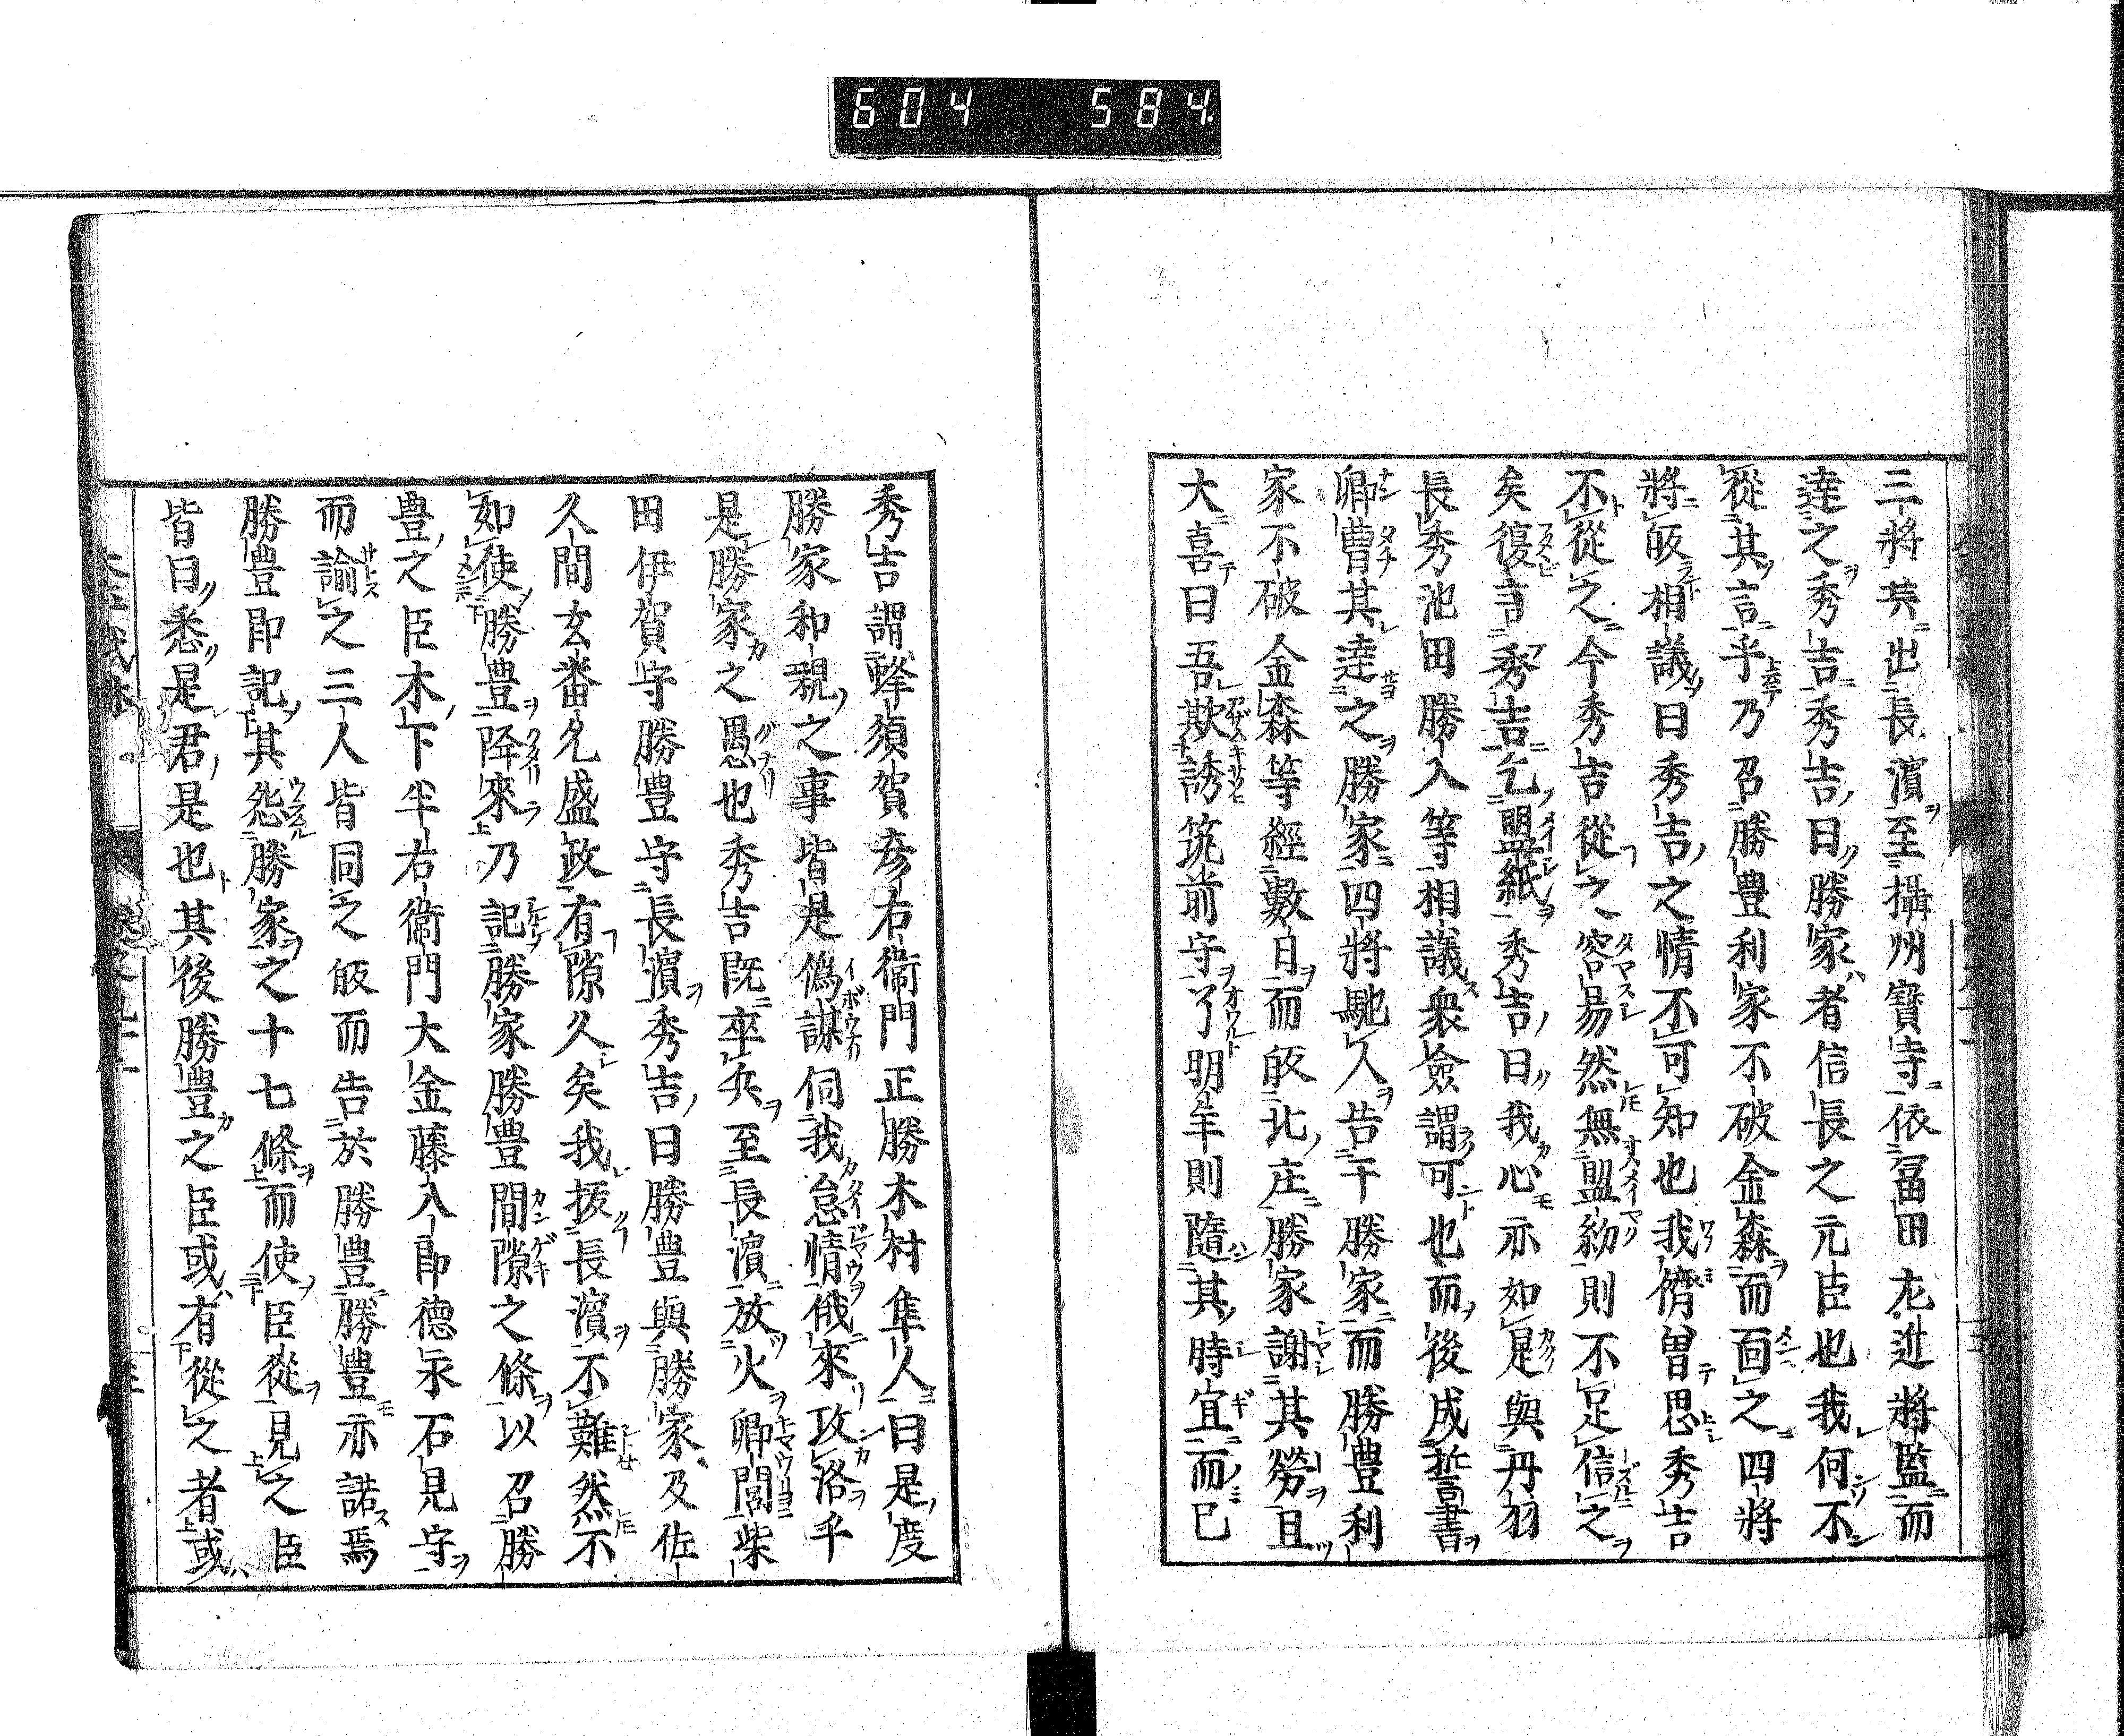 604 584
三將共出長濵至攝州寶寺依冨田左近將監而
達之秀吉秀吉曰勝家者信長之元臣也我何不
從其言乎乃召勝豊利家不破金森而面之四將
將皈相議曰秀吉之情不可知也我儕曽思秀吉
不從之今秀吉從之容易然無盟約則不足信之
矣復言秀吉乞盟紙秀吉曰我心亦如是與丹羽
長秀池田勝入等相議衆僉謂可也而後成誓書
卿曹其達之勝家四將馳人告于勝家而勝豊利
家不破金森等經數日而皈北庄勝家謝其勞且
大喜曰吾欺誘筑前守了明年則隨其時宜而已
秀吉謂蜂須賀彦右衞門正勝木村隼人曰是度
勝家和親之事皆是偽謀伺我怠情俄來攻洛乎
是勝家之愚也秀吉既卒兵至長濵放火卿閭柴
田伊賀守勝豊守長濵秀吉曰勝豊與勝家及佐
久間玄畨允盛政有隙久矣我拔長濵不難然不
如使勝豊降來乃記勝家勝豊間隙之條以召勝
豊之臣木下半右衞門大金藤入郎德永石見守
而諭之三人皆同之皈而告於勝豊勝豊亦諾焉
勝豊即記其怨勝家之十七條而使臣從見之臣
皆曰悉是君是也其後勝豊之臣或有從之者或